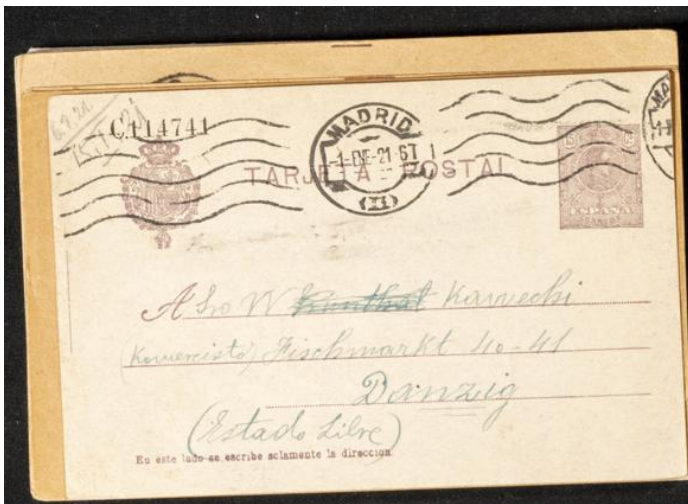 C114741
MADRID
4-ENE-21 6T
TARJETA POSTAL
15 15
ESPAÑA
A Sro W Kawecki
(Komercisto) Fischmarkt 40-41
Danzig
(Estado Libre)
En este lado se escribe solamente la dirección.